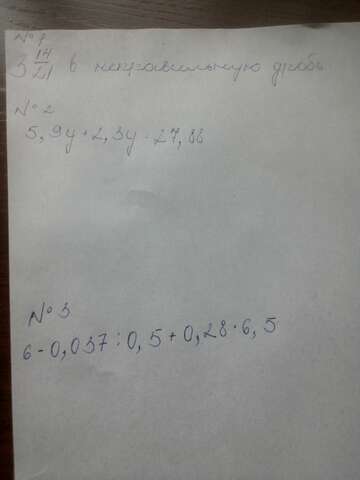 № 1
3 14/21 в неправильную дробь
№ 2
5,9y + 2,3y = 27,88
№ 3
6 - 0,037 : 0,5 + 0,28 · 6,5